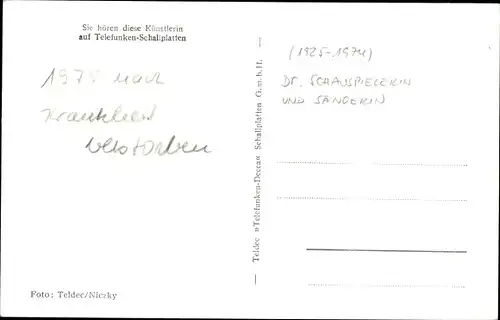 Sie hören diese Künstlerin
auf Telefunken-Schallplatten
1975 nach
Krankheit
verstorben
Foto: Teldec/Niczky
— Teldec »Telefunken-Decca« Schallplatten G.m.b.H. —
(1925-1974)
DT. SCHAUSPIELERIN
UND SÄNGERIN